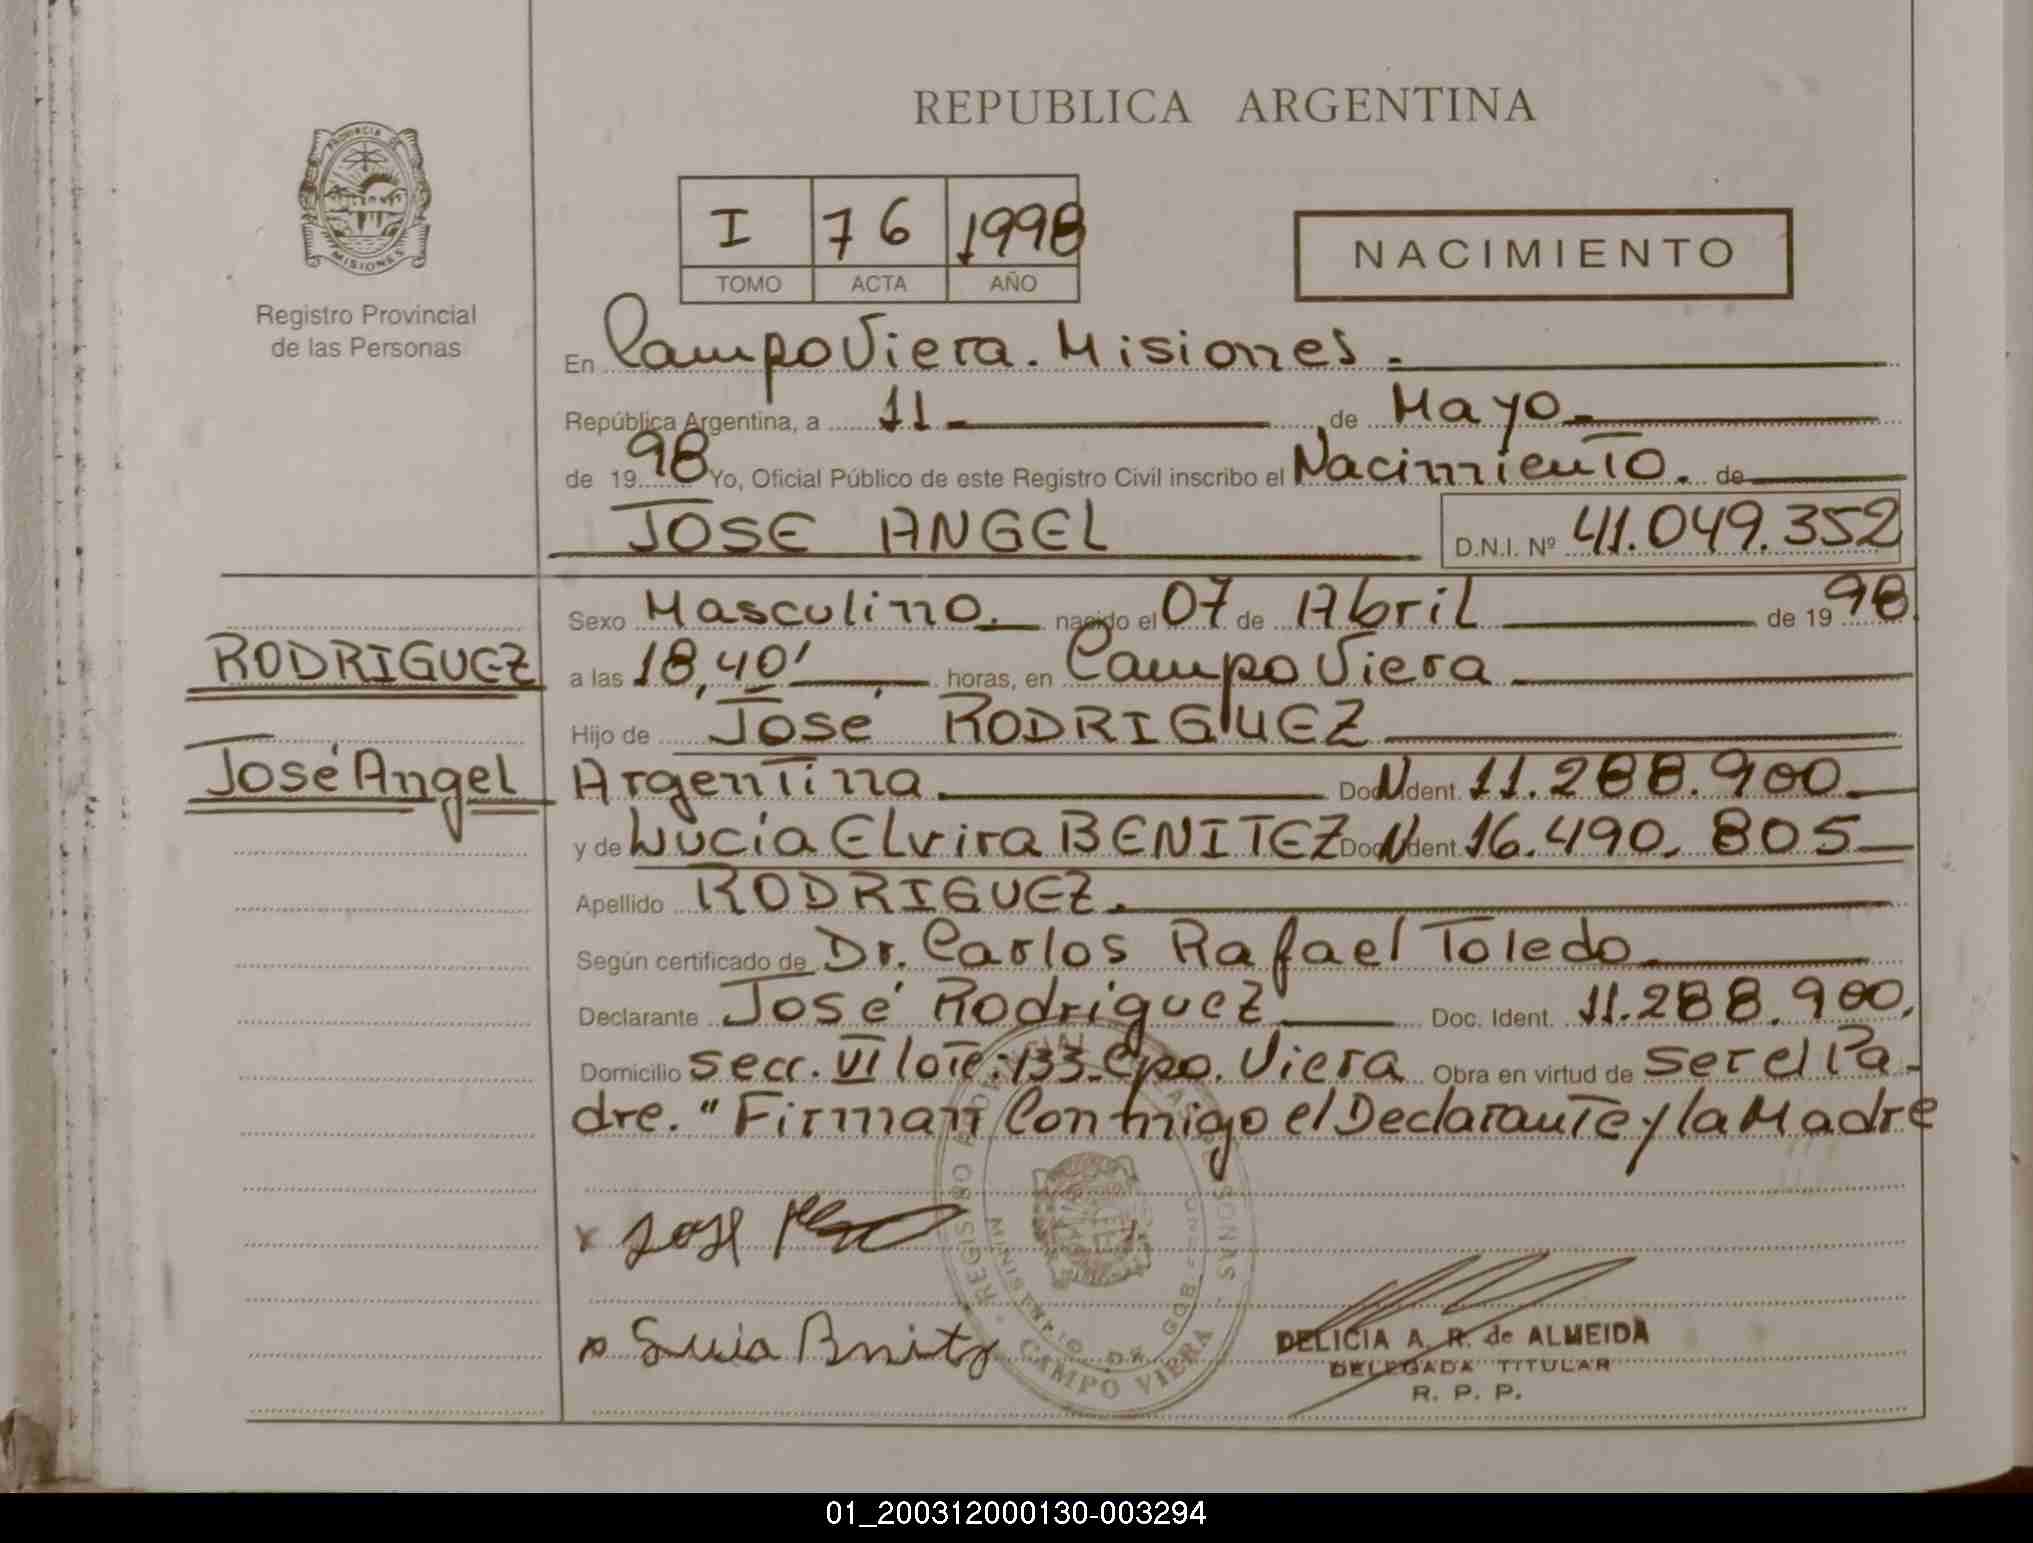 REPUBLICA ARGENTINA
PROVINCIA DE
MISIONES
Registro Provincial
de las Personas
I 76 1998
TOMO ACTA AÑO
NACIMIENTO
En Campo Viera. Misiones.
República Argentina, a 11 de Mayo
de 1998 Yo, Oficial Público de este Registro Civil inscribo el Nacimiento. de
JOSE ANGEL D.N.I. Nº 41.049.352
RODRIGUEZ
José Angel
Sexo Masculino. nacido el 07 de Abril de 1998
a las 18,40' horas, en Campo Viera
Hijo de José RODRIGUEZ
Argentina Doc. Ident. 11.288.900
y de Lucía Elvira BENITEZ Doc. Ident. 16.490.805
Apellido RODRIGUEZ.
Según certificado de Dr. Carlos Rafael Toledo
Declarante José Rodriguez Doc. Ident. 11.288.900.
Domicilio secc. VI lote: 133. Cpo. Viera Obra en virtud de ser el Pa-
dre. "Firman Conmigo el Declarante y la Madre
x José
CAMPO VIERA
DELICIA A. R. de ALMEIDA
DELEGADA TITULAR
R. P. P.
01_200312000130-003294